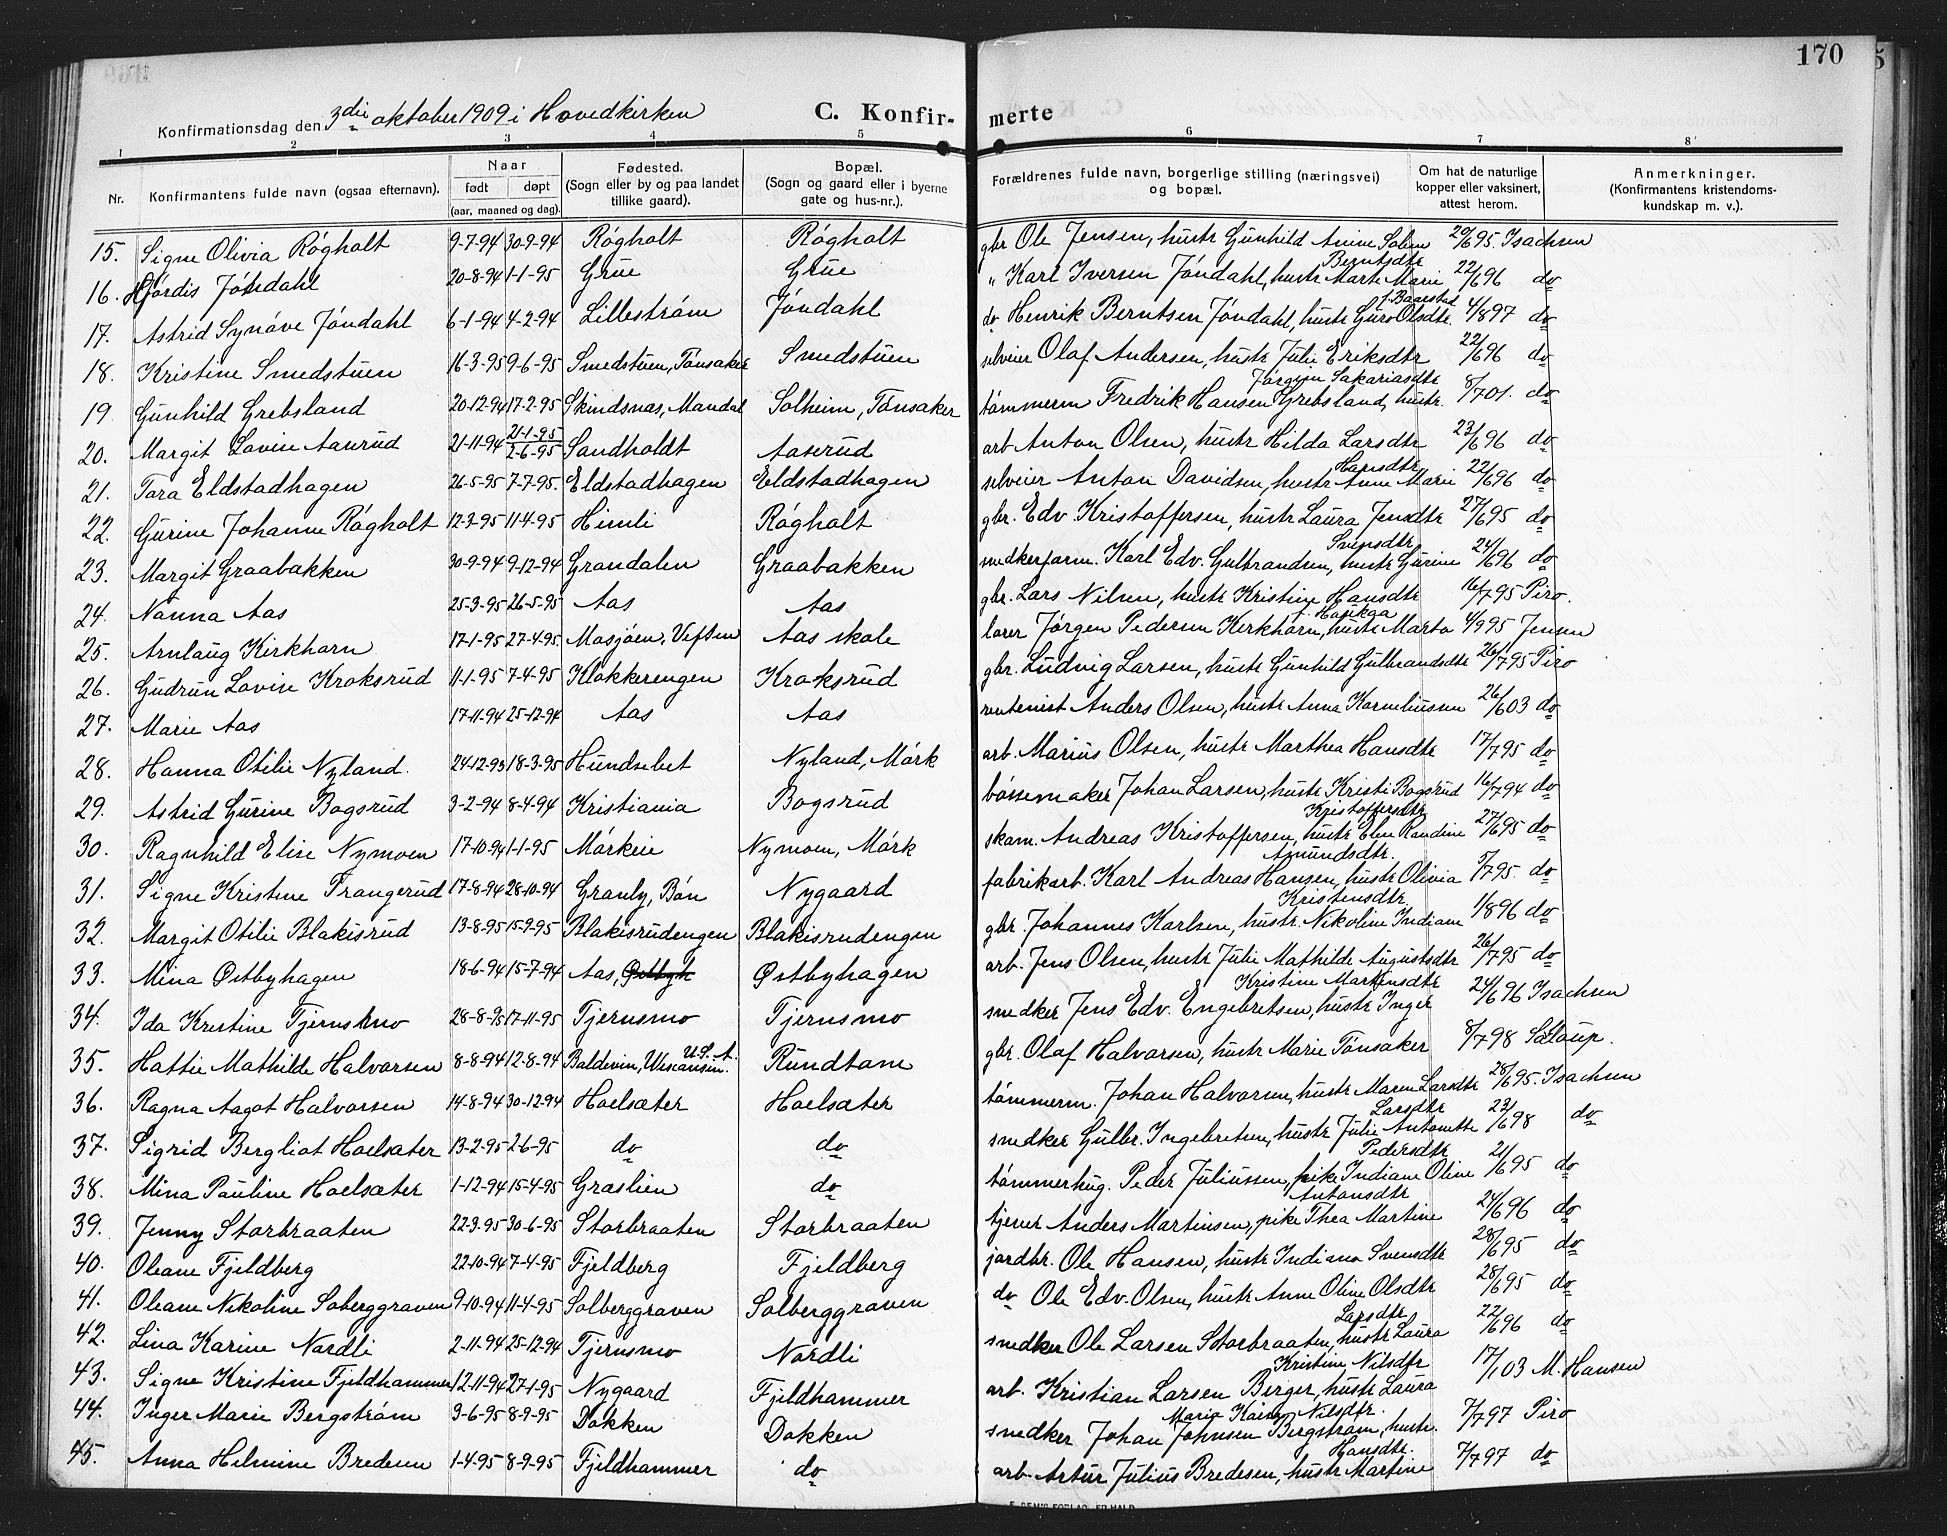 170
Konfirmationsdag den 3die oktober 1909 i Hovedkirken C. Konfirmerte
1 2 3 4 5 6 7 8
Nr. Konfirmantens fulde navn (ogsaa efternavn). Naar født døpt (aar, maaned og dag). Fødested. (Sogn eller by og paa landet tillike gaard). Bopæl. (Sogn og gaard eller i byerne gate og hus-nr.). Forældrenes fulde navn, borgerlige stilling (næringsvei) og bopæl. Om hat de naturlige kopper eller vaksinert, attest herom. Anmerkninger. (Konfirmantens kristendomskundskap m. v.).
15. Signe Olivia Røgholt 9-7-94 30-9-94 Røgholt Røgholt gbr Ole Jensen, hustr Gunhild Anine 20/6 95. Isachsen
16. Hjørdis Jøndahl 20-8-94 1-1-95 Grue Grue " Karl Iversen Jøndahl, hustr Marte Marie Berntsdtr 22/6 96 do
17. Astrid Synøve Jøndahl 6-1-94 4-2-94 Lillestrøm Jøndahl do Henrik Berntsen Jøndahl, hustr Guro Olsdtr. f. Baarstad 4/8 97 do
18. Kristine Smedstuen 16-3-95 9-6-95 Smedstuen, Tønsaker Smedstuen selveier Olaf Andersen, hustr Julie Eriksdtr 22/6 96 do
19. Gunhild Grebsland 20-12-94 17-2-95 Skindsnas, Mandal Solheim, Tønsaker tømmerm Fredrik Hansen Grebsland, hustr. Jørgine Sakariasdtr 8/7 01. do
20. Margit Lovise Aaserud 21-11-94 21-1-95 2-6-95 Sandholdt Aaserud arb Anton Olsen, hustr Hilda Larsdtr 23/6 96 do
21. Tora Eldstadhagen 26-5-95 7-7-95. Eldstadhagen Eldstadhagen selveier Anton Davidsen, hustr Anne Marie Hansdtr 22/6 96 do
22. Gurine Johanne Røgholt 12-2-95 11-4-95 Himli Røgholt gbr. Edv. Kristoffersen, hustr Laura Jensdtr 27/6 95 do
23. Margit Graabakken 30-9-94 9-12-94 Grandalen Graabakken snedkerform. Karl Edv. Gulbrandsen, hustr Gurine Svensdtr 24/6 96 do
24. Nanna Aas 25-3-95 26-5-95 Aas Aas gbr. Lars Nilsen, hustr Kristine Hansdtr 16/7 95 Piro.
25. Arnlaug Kirkhorn 17-1-95 27-4-95. Mosjøen, Vefsen Aas skole lærer Jørgen Pedersen Kerkhorn, hustr Marta f. Haukaa 4/9 95 Jensen
26. Gudrun Lovise Kroksrud 11-1-95 7-4-95 Klokkerengen Kroksrud gbr. Ludvig Larsen, hustr Gunhild Gulbrandsdtr 26/7 95 Piro
27. Marie Aas 17-11-94 25-12-94 Aas Aas rentenist Anders Olsen, hustr Anna Korneliussen 26/6 03 do
28. Hanna Otilie Nyland. 24-12-93 18-3-95 Hundsebet Nyland, Mørk arb. Marius Olsen, hustr Marthea Hansdtr 17/7 95 do
29. Astrid Gurine Bogsrud 3-2-94 8-4-94 Kristiania Bogsrud børsemaker Johan Larsen, hustr Kristi Bogsrud 16/7 94 do
30. Ragnhild Elise Nymoen 17-10-94 1-1-95 Mørkeie Nymoen, Mørk skom. Andreas Kristoffersen, hustr Elen Randine Kristoffersdtr 27/6 95 do
31. Signe Kristine Trangerud 17-8-94 28-10-94 Granly, Bøn Nygaard fabrikarb. Karl Andreas Hansen, hustr Olivia Amundsdtr. 5/7 95. do
32. Margit Otilie Blakisrud 13-8-95 15-9-95 Blakisrudengen Blakisrudengen gbr. Johannes Karlsen, hustr. Nikoline Indiane Kristensdtr 1/8 96 do
33. Mina Østbyhagen 18-6-94 15-7-94 Aas, Østbyhagen arb. Jens Olsen, hustr Julie Mathilde Augustsdtr 26/7 95 do
34. Ida Kristine Tjernsmo 28-8-95 17-11-95 Tjernsmo Tjernsmo snedker Jens Edv. Engebretsen, hustr Inger Kristine Martinsdtr 24/6 96 Isachsen
35. Hattie Mathilde Halvorsen 8-8-94 12-8-94 Baldevin, Wisconsin. U.S.A. Rundtom gbr. Olaf Halvorsen, hustr Marie Tønsaker 8/7 98
36. Ragna Aagot Halvorsen 14-8-94 30-12-94 Hoelsæter Hoelsæter tømmerm. Johan Halvorsen, hustr. Maren Larsdtr 28/6 95. Isachsen
37. Sigrid Bergliot Hoelsæter 13-2-95 2-6-95 do do snedker Gulbr. Ingebretsen, hustr Julie Antonette Larsdtr 23/6 98 do
38. Mina Pauline Hoelsæter 1-12-94 15-4-95 Graslien do tømmerhug. Peder Juliussen, pike Indiane Oline Pedersdtr 21/6 95 do
39. Jenny Storbraaten 22-3-95 30-6-95 Storbraaten Storbraaten tjener Anders Martinsen, pike Thea Martine Antonsdtr 24/6 96 do
40. Oleane Fjeldberg 22-10-94 7-4-95 Fjeldberg Fjeldberg jordbr. Ole Hansen, hustr Indiana Svensdtr 28/6 95 do
41. Oleane Nikoline Soberggraven 9-10-94 11-4-95 Solberggraven Solberggraven do Ole Edv. Olsen, hustr Anne Oline Olsdtr 28/6 95 do
42. Lina Karine Nordli 2-11-94 25-12-94 Tjernsmo Nordli snedker Ole Larsen Storbraaten, hustr Laura Larsdtr 22/6 96 do
43. Signe Kristine Fjeldhammer 12-11-94 27-1-95 Nygaard Fjeldhammer arb. Kristian Larsen Berger, hustr Laura Kristine Nilsdtr 17/1 03 M. Hansen
44. Inger Marie Bergstrøm 3-6-95 8-9-95 Dokken Dokken snedker Johan Johnsen Bergstrøm, hustr. Marie Nilsdtr. 7/7 97 Piro
45. Anna Helmine Bredesen 1-4-95 8-9-95 Fjeldhammer do arb. Artur Julius Bredesen, hustr Martine Hansdtr. 7/7 97 do